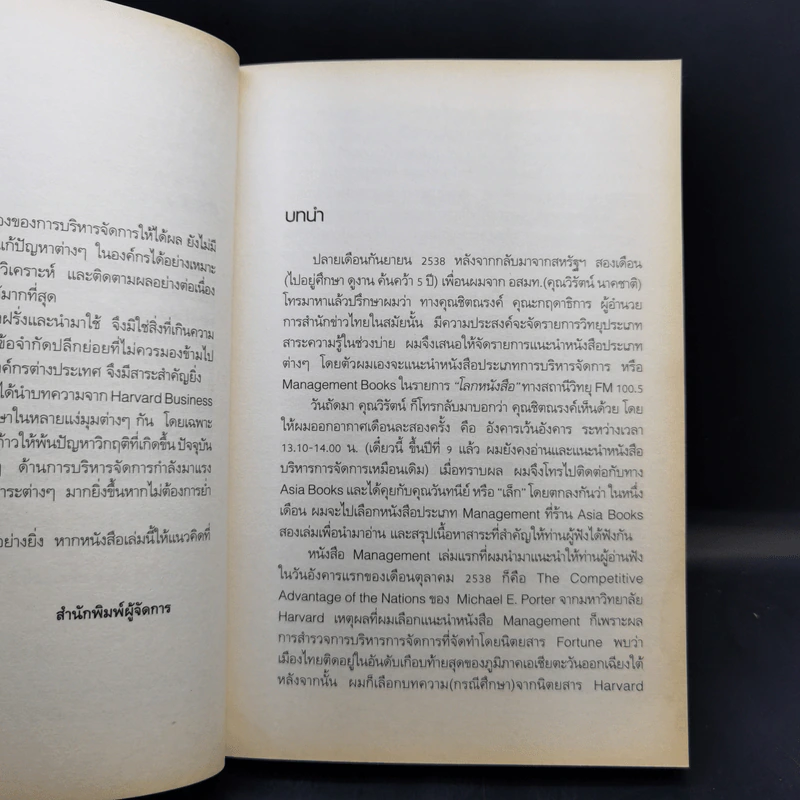 องของการบริหารจัดการให้ได้ผล ยังไม่มี
แก้ปัญหาต่างๆ ในองค์กรได้อย่างเหมาะ
วิเคราะห์ และติดตามผลอย่างต่อเนื่อง
ด้มากที่สุด
งฝรั่งและนำมาใช้ จึงมิใช่สิ่งที่เกินความ
ข้อจำกัดปลีกย่อยที่ไม่ควรมองข้ามไป
งค์กรต่างประเทศ จึงมีสาระสำคัญยิ่ง
ได้นำบทความจาก Harvard Business
ษาในหลายแง่มุมต่างๆ กัน โดยเฉพาะ
ก้าวให้พ้นปัญหาวิกฤติที่เกิดขึ้น ปัจจุบัน
ๆ ด้านการบริหารจัดการกำลังมาแรง
าระต่างๆ มากยิ่งขึ้นหากไม่ต้องการย่ำ
อย่างยิ่ง หากหนังสือเล่มนี้ให้แนวคิดที่
สำนักพิมพ์ผู้จัดการ
บทนำ
ปลายเดือนกันยายน 2538 หลังจากกลับมาจากสหรัฐฯ สองเดือน
(ไปอยู่ศึกษา ดูงาน ค้นคว้า 5 ปี) เพื่อนผมจาก อสมท.(คุณวิรัตน์ นาคชาติ)
โทรมาหาแล้วปรึกษาผมว่า ทางคุณชิตณรงค์ คุณะกฤดาธิการ ผู้อำนวย
การสำนักข่าวไทยในสมัยนั้น มีความประสงค์จะจัดรายการวิทยุประเภท
สาระความรู้ในช่วงบ่าย ผมจึงเสนอให้จัดรายการแนะนำหนังสือประเภท
ต่างๆ โดยตัวผมเองจะแนะนำหนังสือประเภทการบริหารจัดการ หรือ
Management Books ในรายการ "โลกหนังสือ" ทางสถานีวิทยุ FM 100.5
วันถัดมา คุณวิรัตน์ ก็โทรกลับมาบอกว่า คุณชิตณรงค์เห็นด้วย โดย
ให้ผมออกอากาศเดือนละสองครั้ง คือ อังคารเว้นอังคาร ระหว่างเวลา
13.10-14.00 น. (เดี๋ยวนี้ ขึ้นปีที่ 9 แล้ว ผมยังคงอ่านและแนะนำหนังสือ
บริหารการจัดการเหมือนเดิม) เมื่อทราบผล ผมจึงโทรไปติดต่อกับทาง
Asia Books และได้คุยกับคุณวันทนีย์ หรือ "เล็ก" โดยตกลงกันว่า ในหนึ่ง
เดือน ผมจะไปเลือกหนังสือประเภท Management ที่ร้าน Asia Books
สองเล่มเพื่อนำมาอ่าน และสรุปเนื้อหาสาระที่สำคัญให้ท่านผู้ฟังได้ฟังกัน
หนังสือ Management เล่มแรกที่ผมนำมาแนะนำให้ท่านผู้อ่านฟัง
ในวันอังคารแรกของเดือนตุลาคม 2538 ก็คือ The Competitive
Advantage of the Nations ของ Michael E. Porter จากมหาวิทยาลัย
Harvard เหตุผลที่ผมเลือกแนะนำหนังสือ Management ก็เพราะผล
การสำรวจการบริหารการจัดการที่จัดทำโดยนิตยสาร Fortune พบว่า
เมืองไทยติดอยู่ในอันดับเกือบท้ายสุดของภูมิภาคเอเชียตะวันออกเฉียงใต้
หลังจากนั้น ผมก็เลือกบทความ(กรณีศึกษา)จากนิตยสาร Harvard